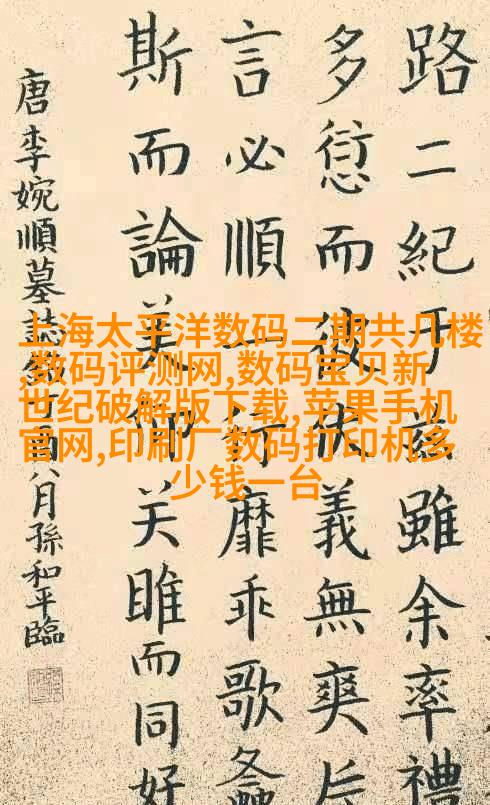 路二紀于茲雖余率禮
多愆而彼伏義無爽
言必順一行靡乖歌螽
斯而論美仰关雎而同好
唐李婉順墓誌銘丁酉八月孫和平臨
上海太平洋数码二期共几楼
,数码评测网,数码宝贝新
世纪破解版下载,苹果手机
官网,印刷厂数码打印机多
少钱一台